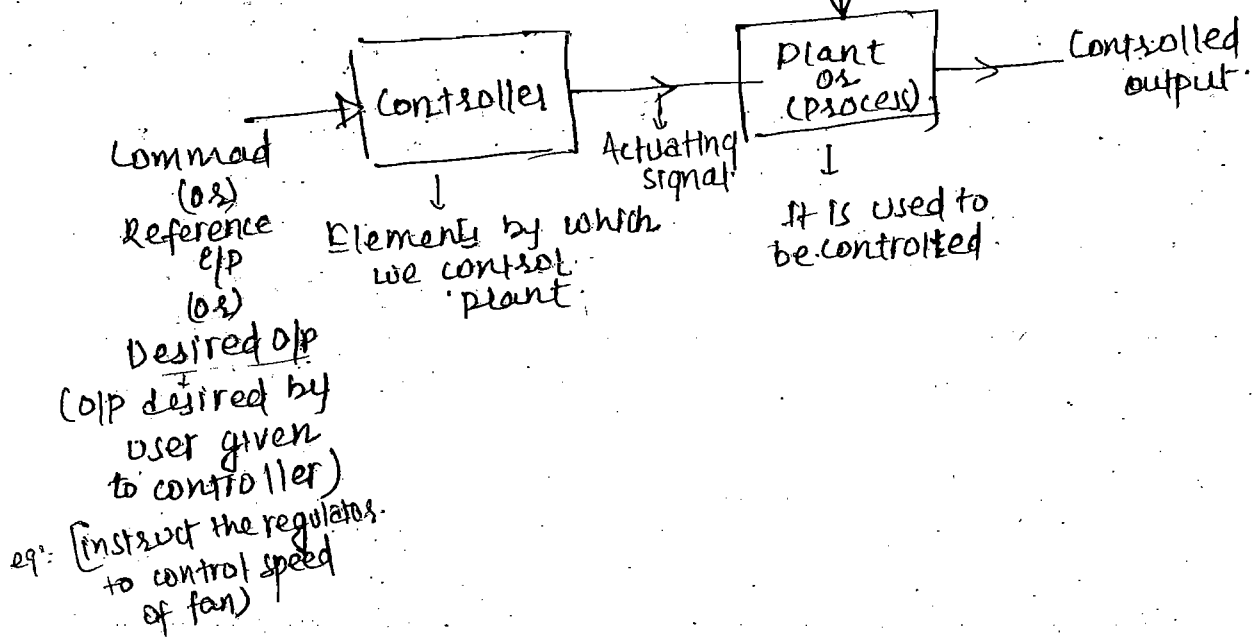 Controller
Plant
or
(process)
Controlled
output.
Actuating
signal.
Commad
(or)
Reference
i/p
(or)
Desired o/p
(o/p desired by
user given
to controller)
eg:- [instruct the regulator.
to control speed
of fan)
Elements by which
we control
plant.
It is used to
be controlled.